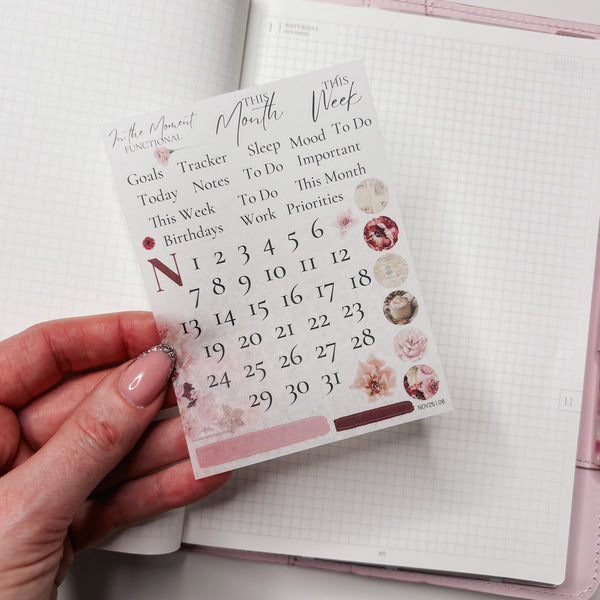 1 SATURDAY
NOVEMBER
In the Moment
FUNCTIONAL
THIS
Month
THIS
Week
Goals Tracker Sleep Mood To Do
Today Notes To Do Important
This Week To Do This Month
Birthdays Work Priorities
N 1 2 3 4 5 6
7 8 9 10 11 12
13 14 15 16 17 18
19 20 21 22 23
24 25 26 27 28
29 30 31
NOV25 | 08
11